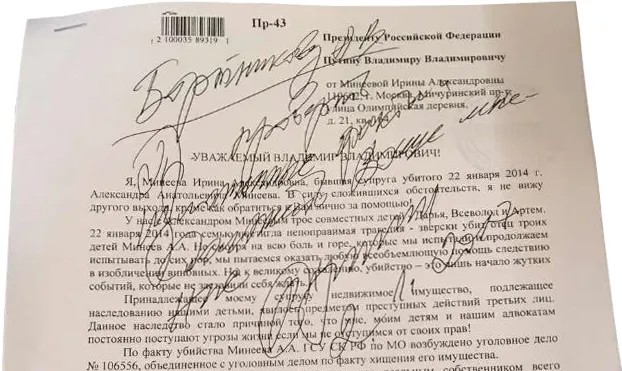 Пр-43
2 100035 89319 1
Президенту Российской Федерации
Путину Владимиру Владимировичу
Бортникову А.В.
от Минеевой Ирины Александровны
г. Москва, Мичуринский пр-т,
улица Олимпийская деревня,
д. 21,
УВАЖАЕМЫЙ ВЛАДИМИР ВЛАДИМИРОВИЧ!
Я, Минеева Ирина Александровна, бывшая супруга убитого 22 января 2014 г.
Александра Анатольевича Минеева. В силу сложившихся обстоятельств, я не вижу
другого выхода, кроме как обратиться к Вам лично за помощью.
У нас с Александром Минеевым трое совместных детей Дарья, Всеволод и Артем.
22 января 2014 года семью постигла непоправимая трагедия - зверски убит отец троих
детей Минеев А.А. Не смотря на всю боль и горе, которые мы испытали и продолжаем
испытывать до сих пор, мы пытаемся оказать любую всеобъемлющую помощь следствию
в изобличении виновных. Но к великому сожалению, убийство – это лишь начало жутких
событий, которые не заставили себя ждать.
Принадлежащее моему супругу недвижимое имущество, подлежащее
наследованию нашими детьми, явилось предметом преступных действий третьих лиц.
Данное наследство стало причиной того, что мне, моим детям и нашим адвокатам
постоянно поступают угрозы жизни если мы не отступимся от своих прав!
По факту убийства Минеева А.А. ГСУ СК РФ по МО возбуждено уголовное дело
№ 106556, объединенное с уголовным делом по факту хищения его имущества.
собственником всего